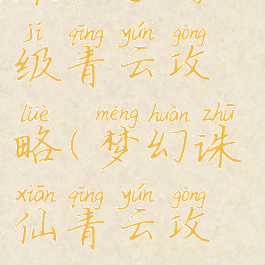 jí qīng yún gōng
级青云攻
lüè mèng huàn zhū
略(梦幻诛
xiān qīng yún gōng
仙青云攻